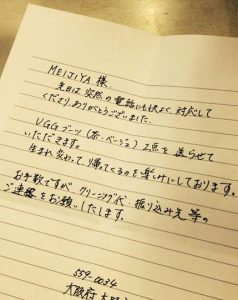 MEIJIYA 様.
先日は突然の電話にも快よく対応して
くださり、ありがとうございました.
UGGブーツ(茶・ベージュ)2点を送らせて
いただきます。
生まれ変わって帰ってくるのを楽しみにしております。
お手数ですが クリーニング代、振り込み先等の
ご連絡をお願いいたします。
559-0034
大阪府